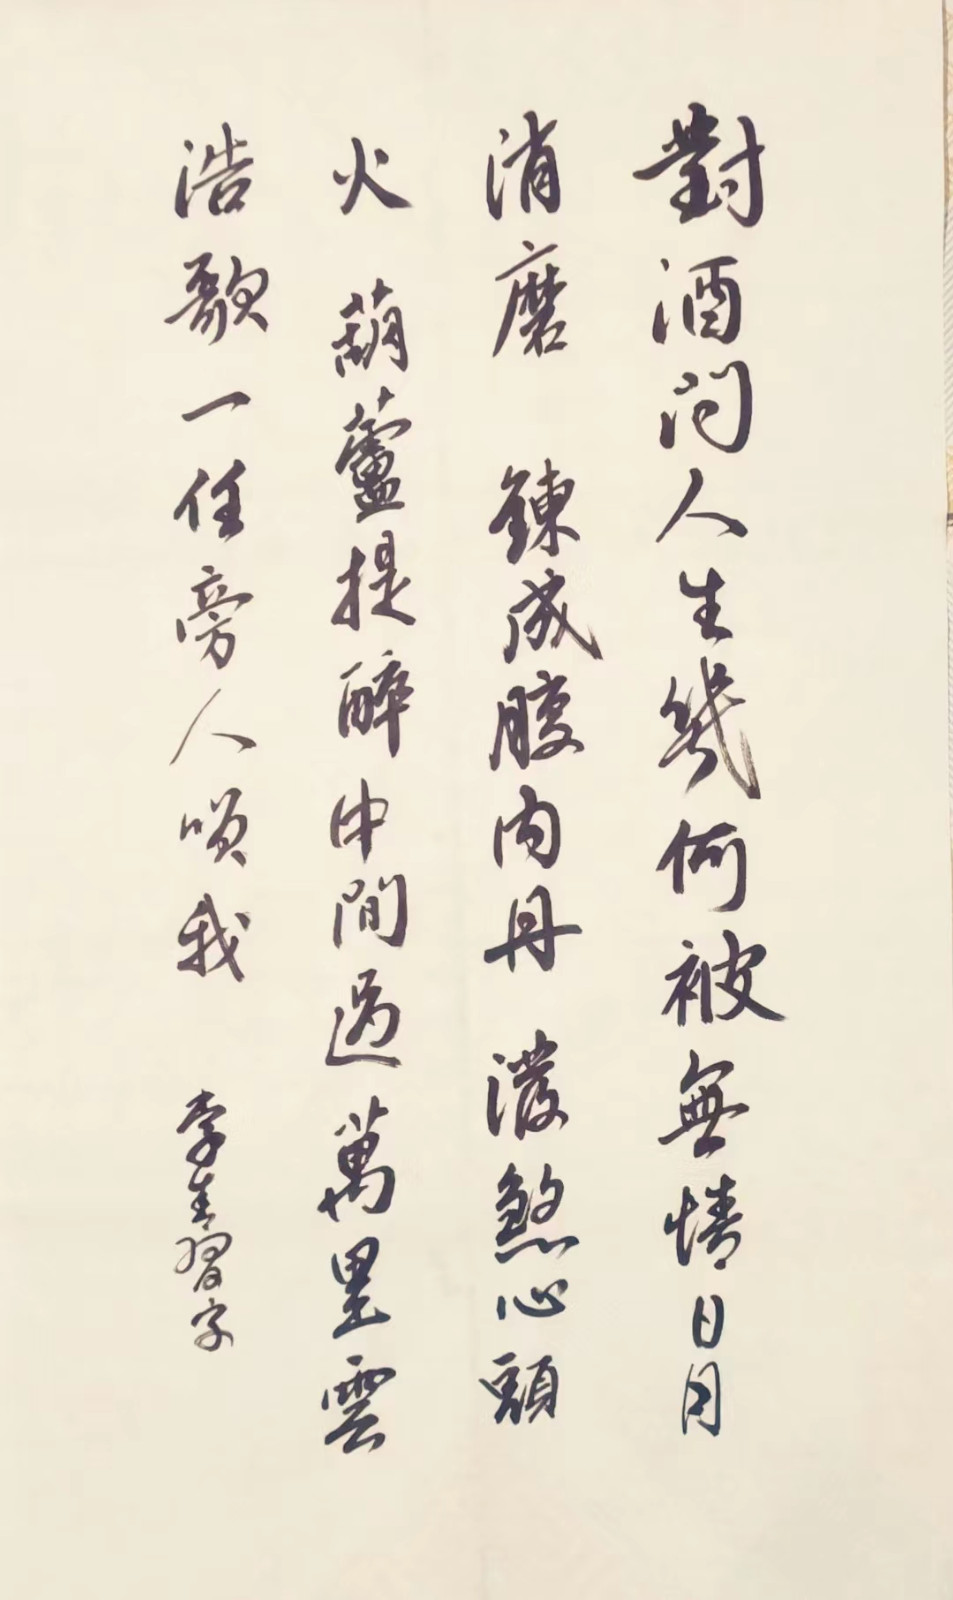 對酒問人生幾何被無情日月
消磨 鍊成腹內丹 潑煞心頭
火 葫蘆提醉中間過萬里雲
浩歌一任旁人嗔我 李生習字